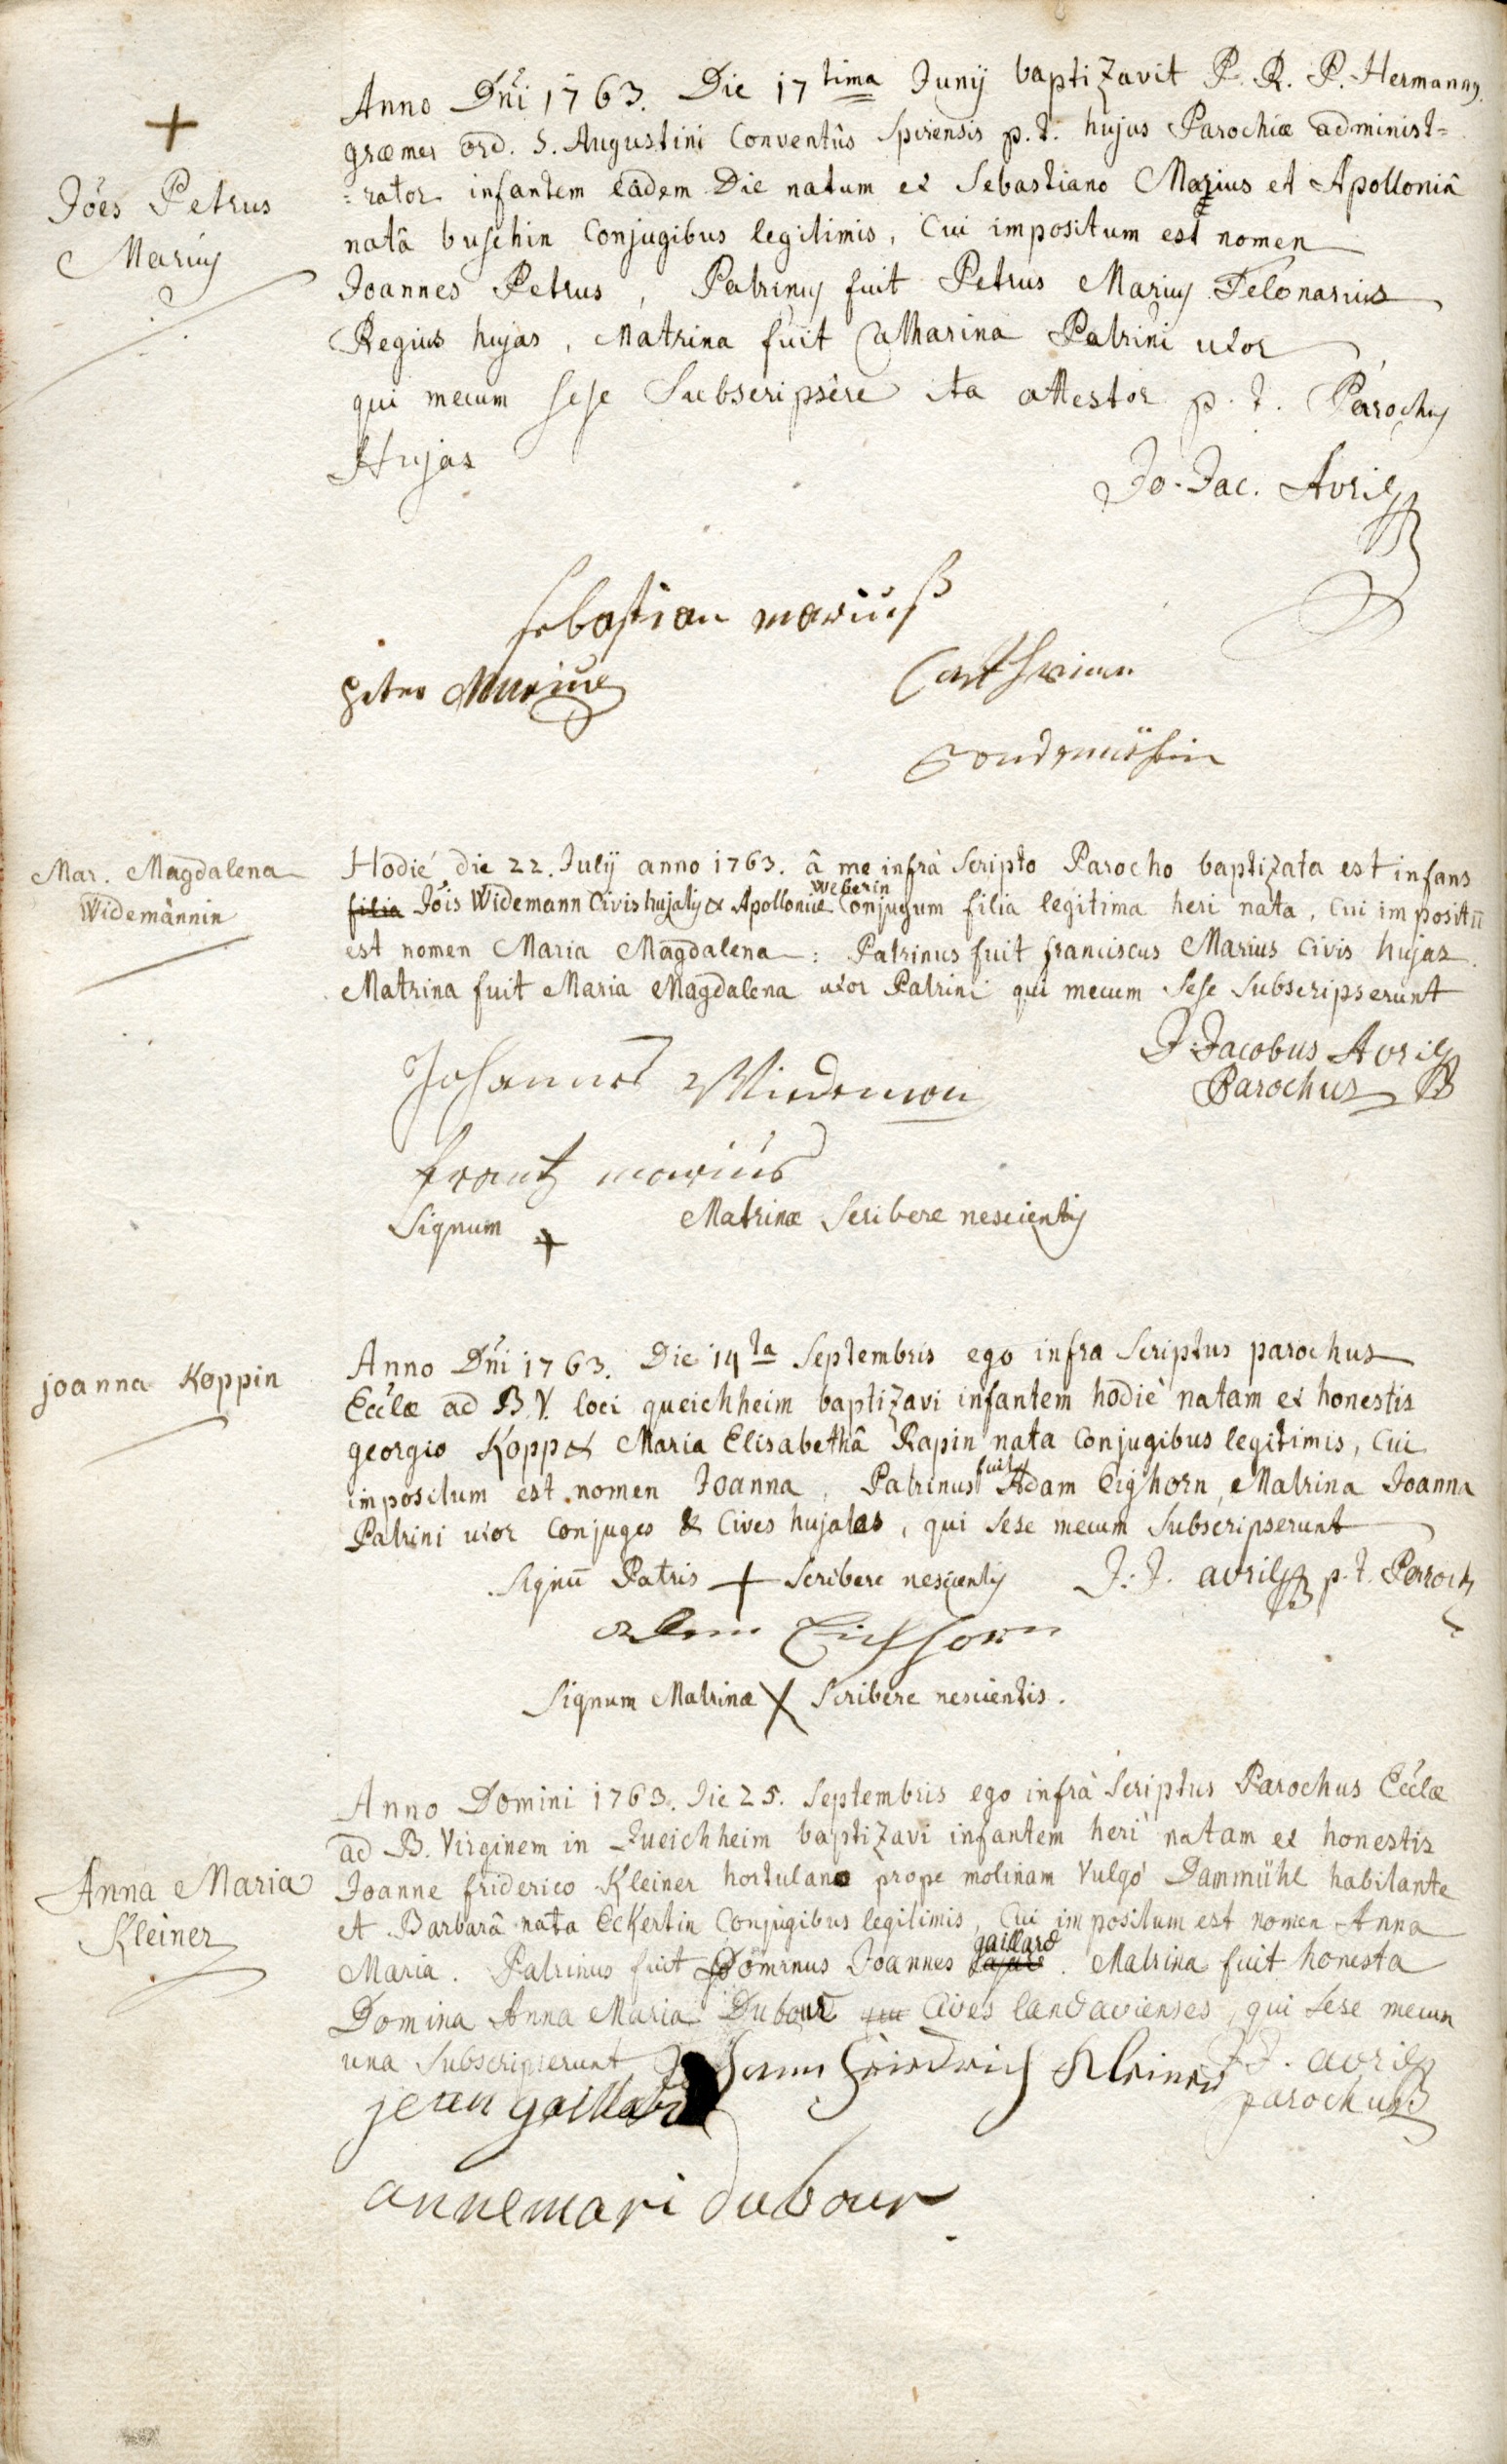 Anno Dñi 1763. Die 17 tima Junÿ baptizavit P. R. P. Hermanng
græmer ord. S. Augustini Conventûs Spirensis p. t. hujus Parochiæ administ=
+
=rator infantem eâdem Die natum ex Sebastiano Marius et Apolloniâ
Jöes Petrus
Mariuy
natâ buschin Conjugibus legitimis, Cui impositum est nomen
Joannes Petrus, Patrinuy fuit Petrus Mariuy Telonarius
Regius hujas, Matrina fuit Catharina Patrini uxor
qui mecum sese Subscripsêre ita attestor p. t. Parochuy
Hujas
Jo. Jac. Avril
sebastian mariuß
peter Marius
Catharina
Mar. Magdalena
Widemännin
Hodié die 22. Julÿ anno 1763. â me infrà Scripto Parocho baptizata est infans
weberin
filia Jöis Widemann Civis hujatiy & Apolloniæ Conjugum filia legitima heri nata, Cui impositū
est nomen Maria Magdalena: Patrinus fuit franciscus Marius Civis hujas.
Matrina fuit Maria Magdalena uxor Patrini qui mecum Sese Subscripserunt
J. Jacobus Avril
Parochus
Johannes Wiedeman
frantz marius
Signum + Matrinæ Scribere nescientiy
joanna Koppin
Anno Dñi 1763. Die 14 ta Septembris ego infra Scriptus parochus
Ecclæ ad B. V. loci queichheim baptizavi infantem hodiè natam ex honestis
georgio Kopp & Maria Elisabethâ Rapin nata Conjugibus legitimis, Cui
impositum est nomen Joanna, Patrinus fuit Adam Eighorn, Matrina Joanna
Patrini uxor Conjuges & Cives hujates, qui Sese mecum Subscripserunt
Signū Patris + Scribere nescientiy J. J. avril p. t. Paroch
adam Eichhorn
Signum Matrinæ X Scribere nescientis.
Anno Domini 1763. Die 25. Septembris ego infrà Scriptus Parochus Ecclæ
ad B. Virginem in Queichheim baptizavi infantem heri natam ex honestis
Anna Maria
Kleiner
Joanne friderico Kleiner hortulano prope molinam Vulgò Dammühl habitante
et Barbarâ nata Eckertin Conjugibus legitimis, Cui impositum est nomen Anna
gaillard
Maria. Patrinus fuit Dominus Joannes. Matrina fuit honesta
Domina Anna Maria Dubour Cives landavienses, qui Sese mecum
una Subscripserunt Johann friedrich Kleiner J. J. avril
parochus
jean gaillard
annemari dubour